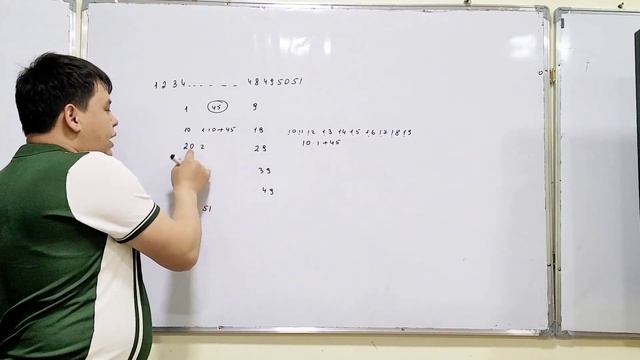 1 2 3 4 . . . . . . 48 49 50 51
1 45 9
10 1·10+45 19 10 11 12 13 14 15 16 17 18 19
10·1+45
20 2 29
39
49
51